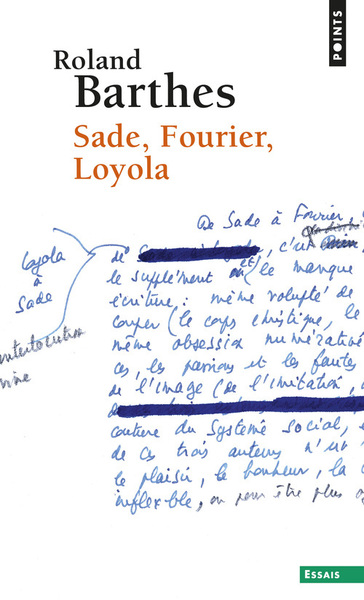 POINTS
Roland
Barthes
Sade, Fourier,
Loyola
De Sade à Fourier,
Loyola
à
Sade
de
le supplément
le manque
écriture : même volupté de
couper (le corps christique, le
même obsession numérative
ces, les passions et les fautes
de l'image (de l'imitation,
couture du système social, e
de ces trois auteurs n'
le plaisir, le bonheur, la
inflexible, on peut être plus
ESSAIS